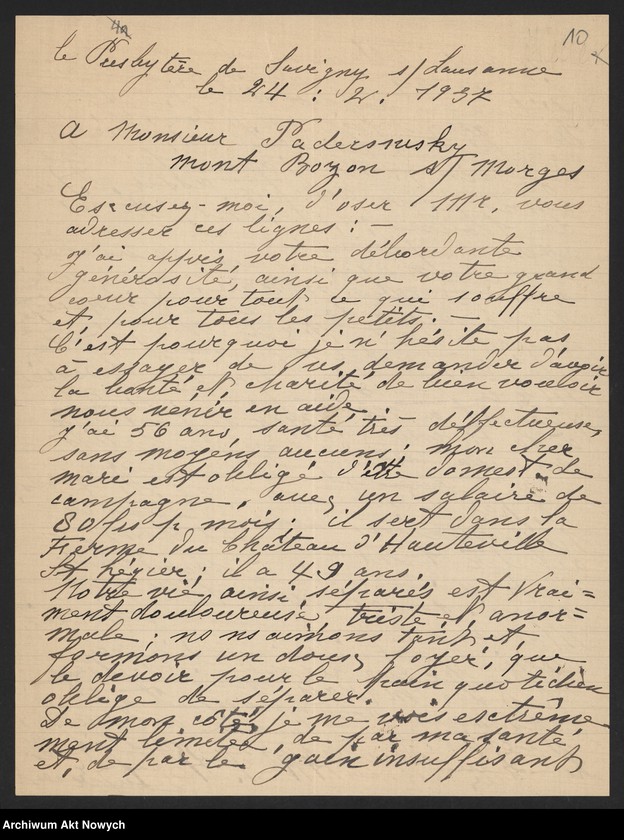 10
le Presbytère de Savigny s/Lausanne
le 24 : 2. 1937
A Monsieur Paderewsky
Mont Bozon s/ Morges
Excusez-moi, d'oser Mr. vous
adresser ces lignes : -
J'ai appris votre débordante
générosité, ainsi que votre grand
coeur pour tout ce qui souffre
et, pour tous les petits. -
C'est pourquoi je n'hésite pas
à essayer de vs. demander d'avoir
la bonté et charité de bien vouloir
nous venir en aide.
J'ai 56 ans, santé très déffectueuse,
sans moyens aucuns ; mon cher
mari est obligé d'être domest. de
campagne, avec un salaire de
80 frs p. mois ; il sert dans la
Ferme du Château d'Hauteville
St Légier ; il a 49 ans.
Notre vie, ainsi séparés est vrai=
ment douloureuse, triste et anor=
male ; ns ns aimons tant et,
formons un doux foyer, que
le devoir pour le pain quotidien
oblige de séparer.
De mon côté, je me vois extrême
ment limitée, de par ma santé
et, de par le gain insuffisant
Archiwum Akt Nowych